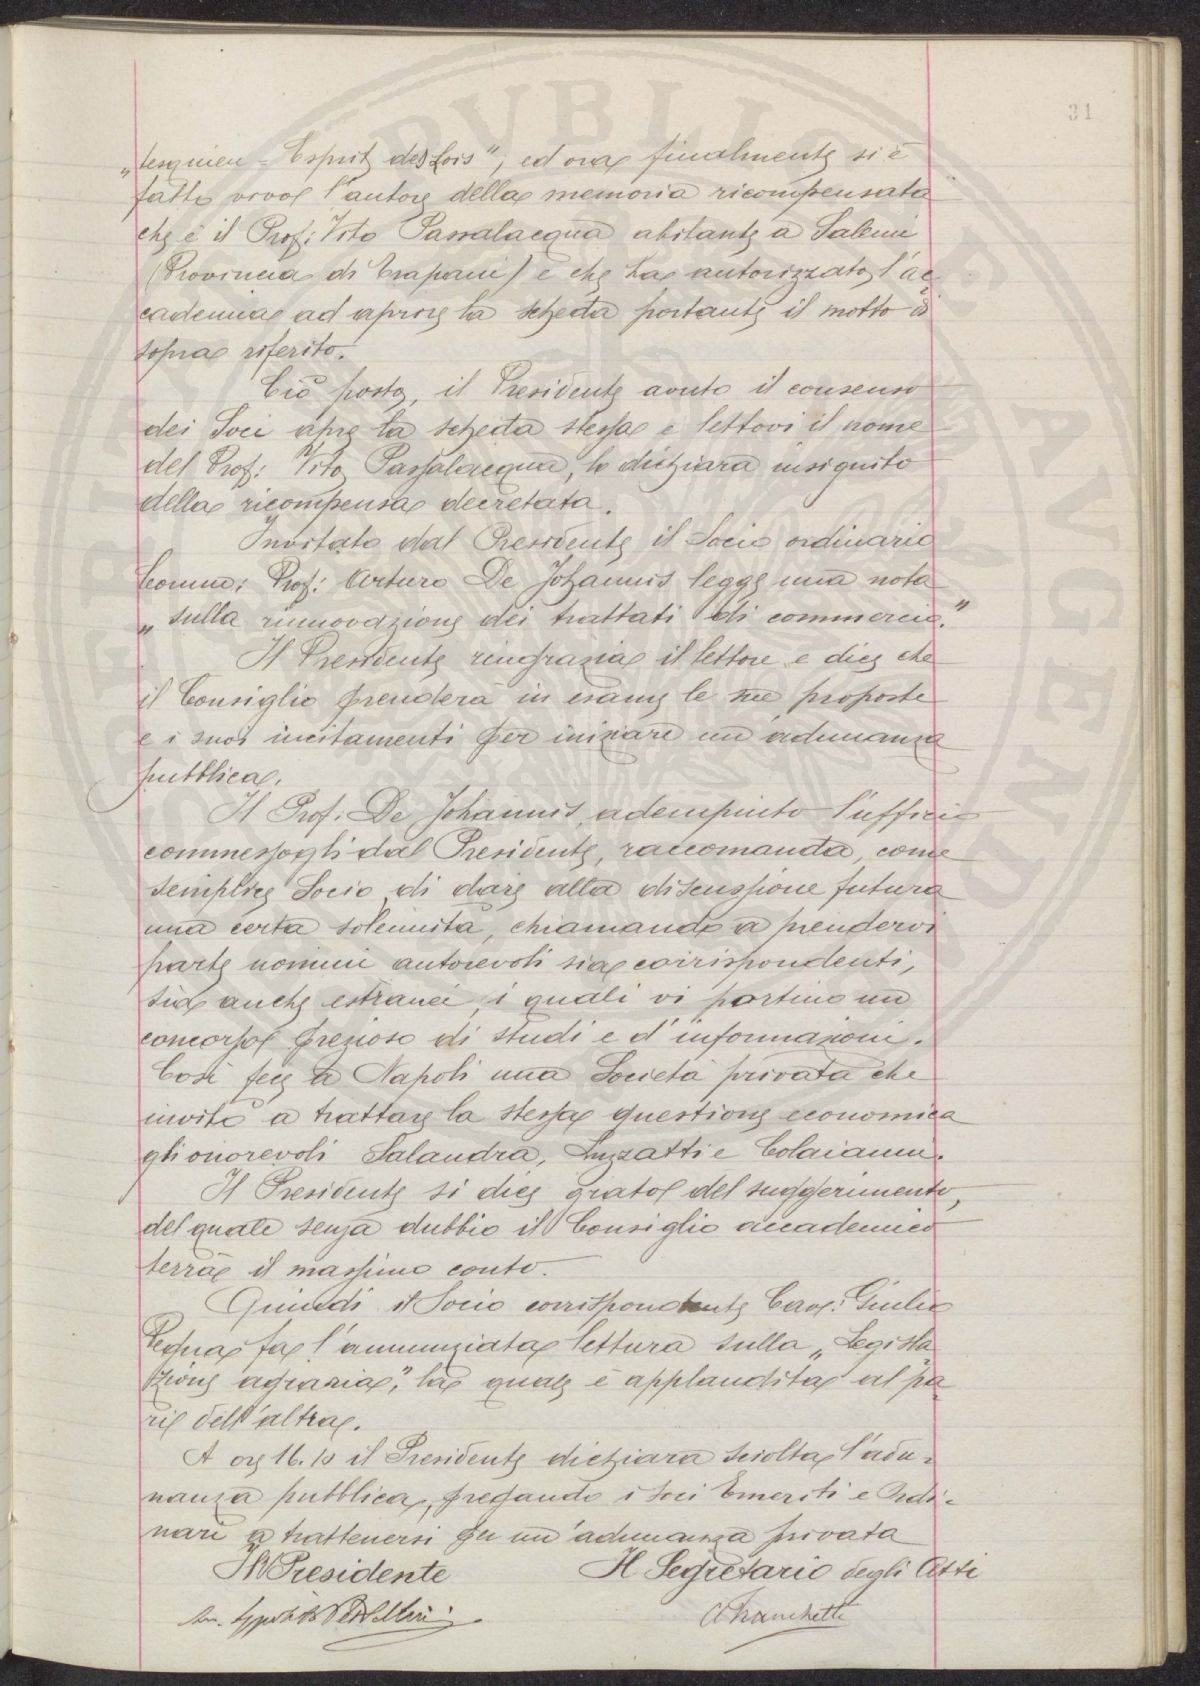 31
„tesquieu = Esprit des Lois", ed ora finalmente si è
fatto vivo l'autore della memoria ricompensata
che è il Prof: Vito Passalacqua abitante a Salemi
(Provincia di Trapani) e che ha autorizzato l'ac-
cademia ad aprire la scheda portante il motto di
sopra riferito.
Ciò posto, il Presidente avuto il consenso
dei Soci apre la scheda stessa e lettovi il nome
del Prof: Vito Passalacqua, lo dichiara insignito
della ricompensa decretata.
Invitato dal Presidente il Socio ordinario
Comm: Prof: Arturo De Johannis legge una nota
„sulla rinnovazione dei trattati di commercio."
Il Presidente ringrazia il lettore e dice che
il Consiglio prenderà in esame le sue proposte
e i suoi incitamenti per iniziare un adunanza
pubblica.
Il Prof. De Johannis, adempiuto l'ufficio
commessogli dal Presidente, raccomanda, come
semplice Socio, di dare alla discussione futura
una certa solennità, chiamando a prendervi
parte uomini autorevoli sia corrispondenti,
sia anche estranei, i quali vi portino un
concorso prezioso di studi e d'informazioni.
Così fece a Napoli una Società privata che
invitò a trattare la stessa questione economica
gli onorevoli Salandra, Luzzatti e Colaianni.
Il Presidente si dice grato del suggerimento,
del quale senza dubbio il Consiglio accademico
terrà il massimo conto.
Quindi il Socio corrispondente Cav: Giulio
fa l'annunziata lettura sulla „Legisla
zione agraria", la quale è applaudita al pa-
ri dell'altra.
A ore 16.10 il Presidente dichiara sciolta l'adu-
nanza pubblica, pregando i soci Emeriti e Ordi-
nari a trattenersi per un'adunanza privata
Il Presidente Il Segretario degli Atti
AFranchetti